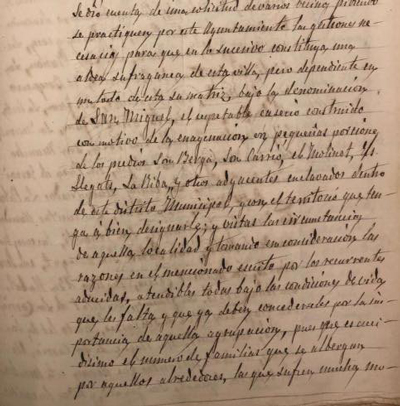 Se dió cuenta de una solicitud de varios vecinos pidiendo
se practiquen por este Ayuntamiento las gestiones ne-
cesarias para que en lo sucesivo constituya una
aldea sufraganea de esta villa, pero dependiente en
un todo de esta su matriz, bajo la denominación
de San Miguel, el respetable caserio construido
con motivo de la enagenación en pequeñas porciones
de los predios Son Berga, Son Carrió, el Molinet, Es
Llegats, Sa Biba, y otros adyacentes enclavados dentro
de este distrito Municipal, y con el territorio que ten-
ga á bien designarle; y vistas las circunstancias
de aquella localidad y tomando en consideración las
razones en el mencionado escrito por los recurrentes
aducidas, atendibles todas bajo las condiciones de vida
que les falta y que ya deben concederseles por la im-
portancia de aquella agrupación, pues que es creci-
disimo el numero de familias que se albergan
por aquellos alrededores, las que sufren mucha mo-